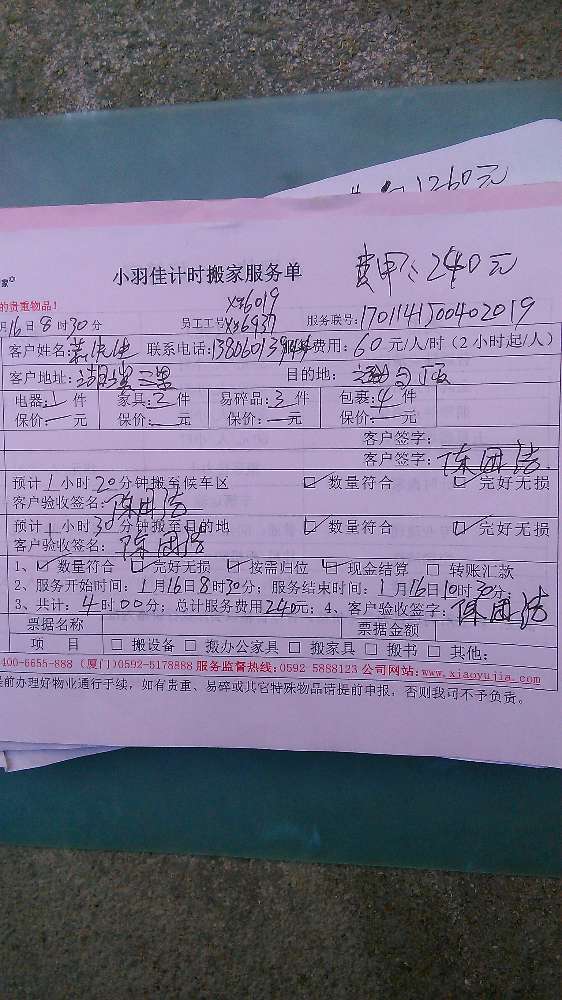 1260元
小羽佳计时搬家服务单
费用:240元
家
的贵重物品!
XZ6019
月16日8时30分 员工工号XZ6937 服务联号:170114J00402019
客户姓名: 联系电话: 服务费用:60元/人/时(2小时起/人)
客户地址: 目的地:
电器:1件 家具:2件 易碎品:3件 包裹:4件
保价:一元 保价:一元 保价:一元 保价:一元
客户签字:
客户签字:
预计1小时20分钟搬至候车区 ☑数量符合 ☑完好无损
客户验收签名:
预计1小时30分钟搬至目的地 ☑数量符合 ☑完好无损
客户验收签名:
1、☑数量符合 ☑完好无损 ☑按需归位 ☑现金结算 □转账汇款
2、服务开始时间:1月16日8时30分;服务结束时间:1月16日10时30分;
3、共计:4时00分;总计服务费用240元;4、客户验收签字:
票据名称 票据金额
项 目 □搬设备 □搬办公家具 □搬家具 □搬书 □其他:
400-6655-888 (厦门)0592-5178888 服务监督热线:0592 5888123 公司网站:www.xiaoyujia.com
前办理好物业通行手续,如有贵重、易碎或其它特殊物品请提前申报,否则我司不予负责。